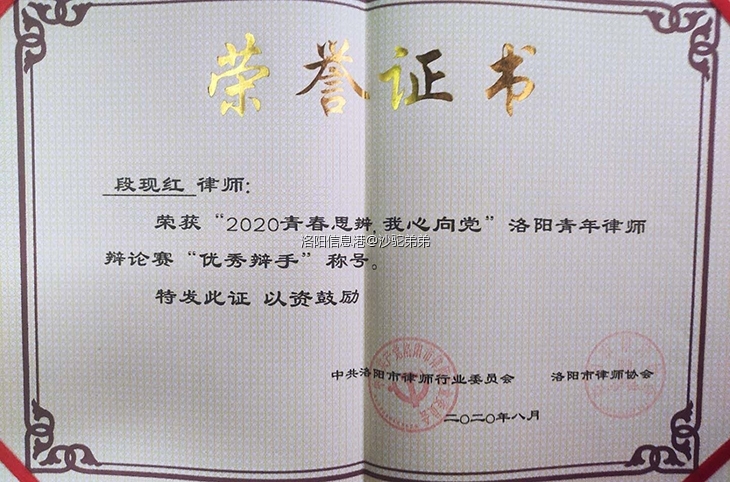 荣誉证书
段现红 律师:
荣获“2020青春思辨,我心向党”洛阳青年律师
洛阳信息港@沙驼弟弟
辩论赛“优秀辩手”称号。
特发此证 以资鼓励
中共洛阳市律师行业委员会 洛阳市律师协会
二〇二〇年八月